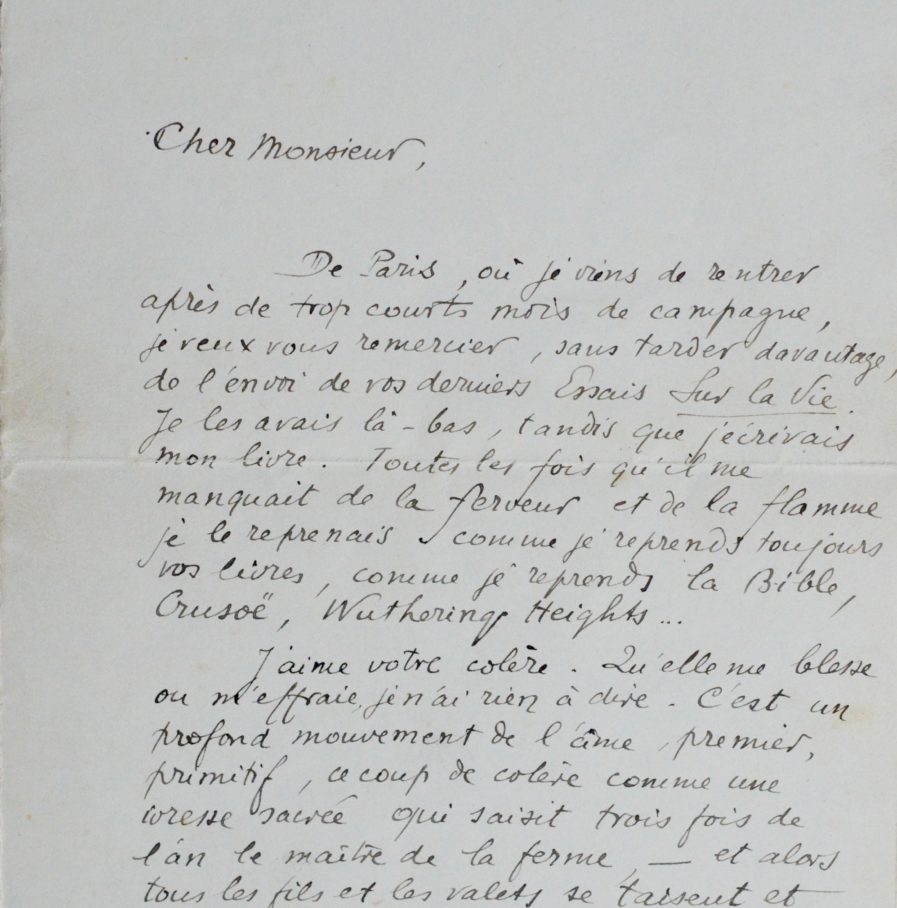 Cher Monsieur,
De Paris, où je viens de rentrer
après de trop courts mois de campagne,
je veux vous remercier, sans tarder davantage,
de l'envoi de vos derniers Essais Sur la Vie.
Je les avais là-bas, tandis que j'écrivais
mon livre. Toutes les fois qu'il me
manquait de la ferveur et de la flamme
je le reprenais comme je reprends toujours
vos livres, comme je reprends la Bible,
Crusoë, Wuthering Heights...
J'aime votre colère. Qu'elle me blesse
ou m'effraie, je n'ai rien à dire. C'est un
profond mouvement de l'âme, premier,
primitif, ce coup de colère comme une
ivresse sacrée qui saisit trois fois de
l'an le maître de la ferme, — et alors
tous les fils et les valets se taisent et